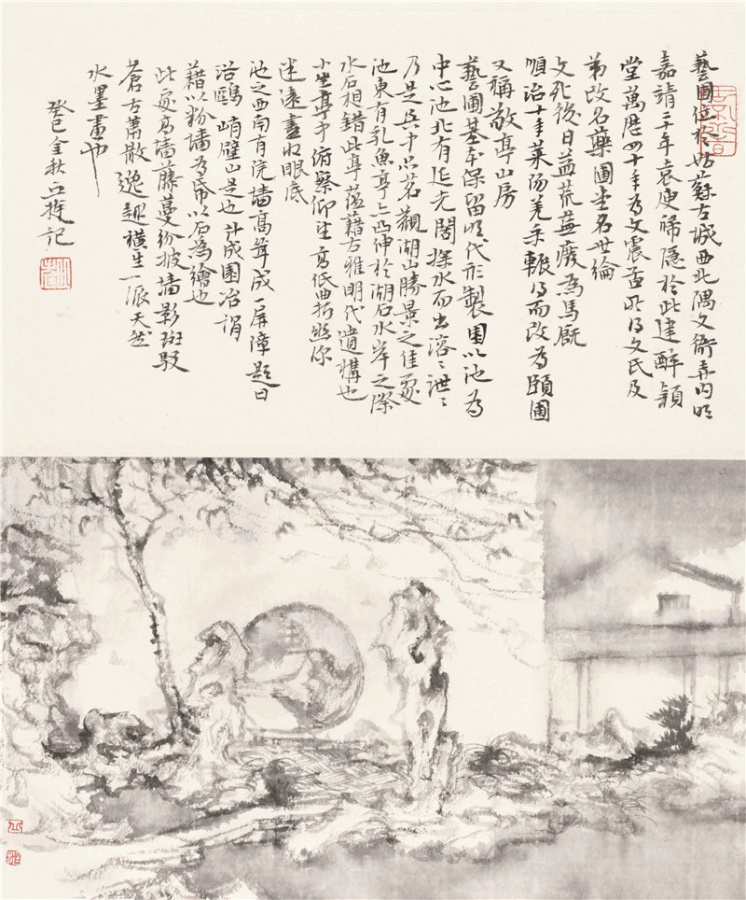 藝圃位於姑蘇古城西北隅文衙弄内明
嘉靖二十年袁隱於此建醉穎
堂萬历四十年為文震孟所得文氏及
弟改名藥圃名世綸
文死後日益荒蕪廢為馬厩
順治十年萊陽姜采輾得而改為頤圃
又稱敬亭山房
藝圃基本保留明代形製園以池為
中心池北有延光閣探水而出溶〻泄〻
乃是其中品茗觀湖山勝景之佳處
池東有乳魚亭〻凸伸於湖石水岸之際
水石相錯此亭蕴藉古雅明代遺構也
小坐亭中俯察仰望高低曲折
迷遠盡收眼底
池之西南有院墙高聳成一屏障題曰
浴鷗峭壁山是也計成園冶謂
藉以粉墙為帋以石為繪也
此處高墙藤蔓纷披墙影斑駁
蒼古蕭散逸趣横生一派天然
水墨畫也
癸巳金秋丘挺記